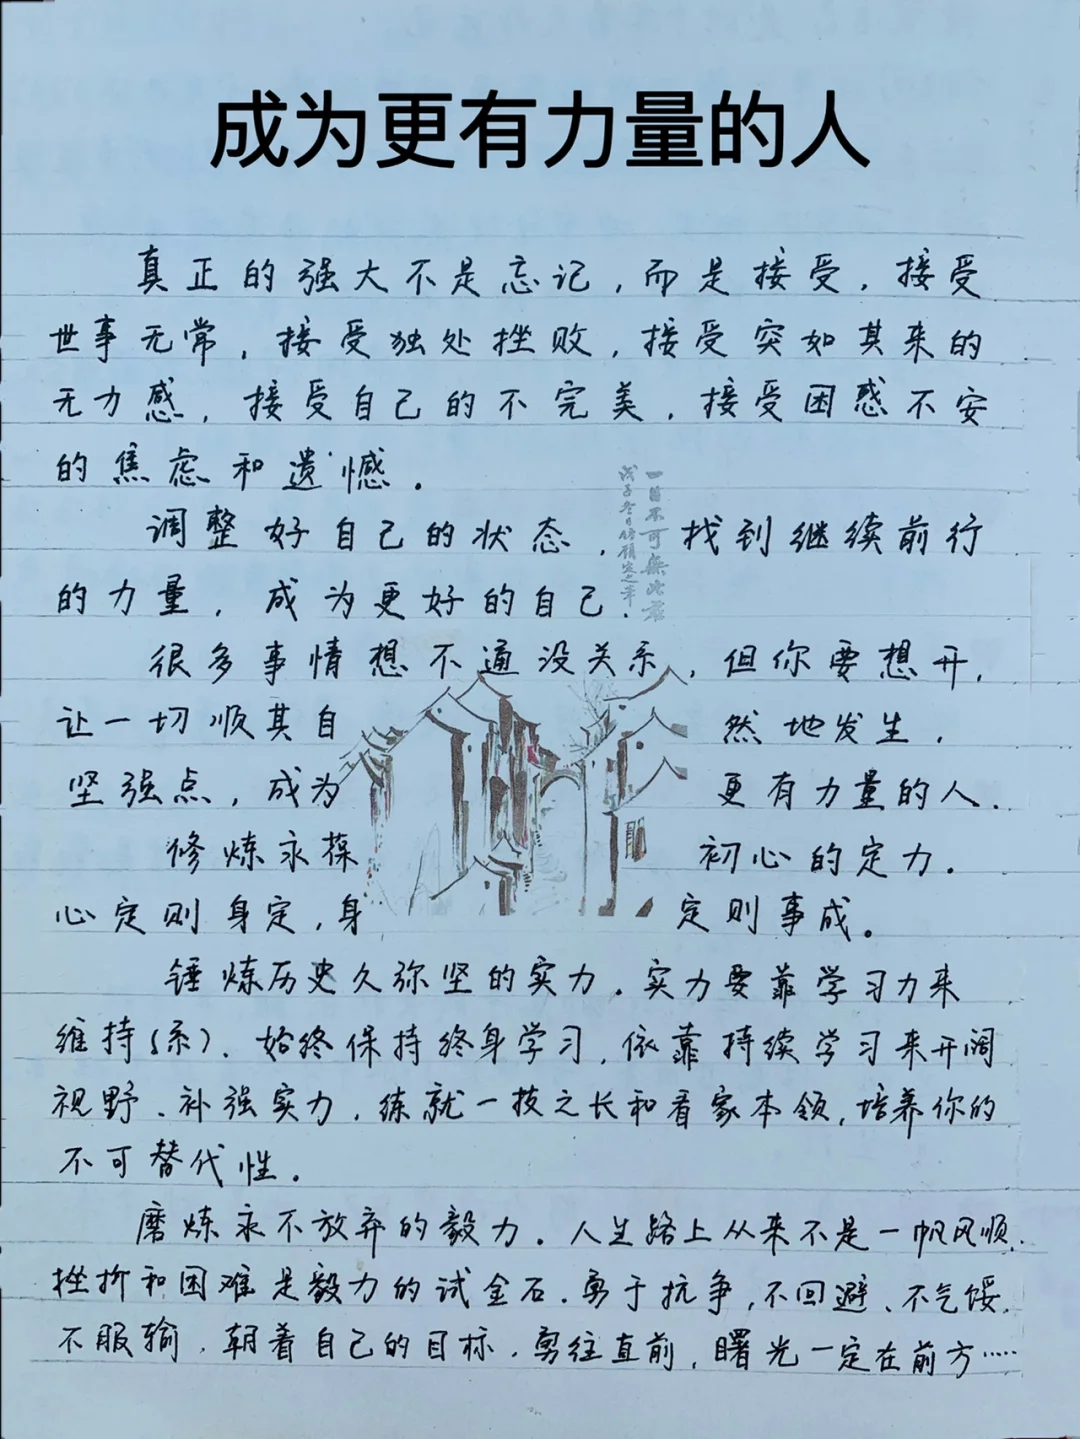 成为更有力量的人
真正的强大不是忘记，而是接受，接受
世事无常，接受独处挫败，接受突如其来的
无力感，接受自己的不完美，接受困惑不安
的焦虑和遗憾．
调整好自己的状态，找到继续前行
的力量，成为更好的自己．
很多事情想不通没关系，但你要想开，
让一切顺其自然地发生，
坚强点，成为更有力量的人．
修炼永葆初心的定力．
心定则身定，身定则事成。
锤炼历史久弥坚的实力．实力要靠学习力来
维持(系)．始终保持终身学习，依靠持续学习来开阔
视野、补强实力，练就一技之长和看家本领，培养你的
不可替代性．
磨炼永不放弃的毅力．人生路上从来不是一帆风顺．
挫折和困难是毅力的试金石．勇于抗争，不回避、不气馁．
不服输．朝着自己的目标．勇往直前，曙光一定在前方……
一日不可无此君